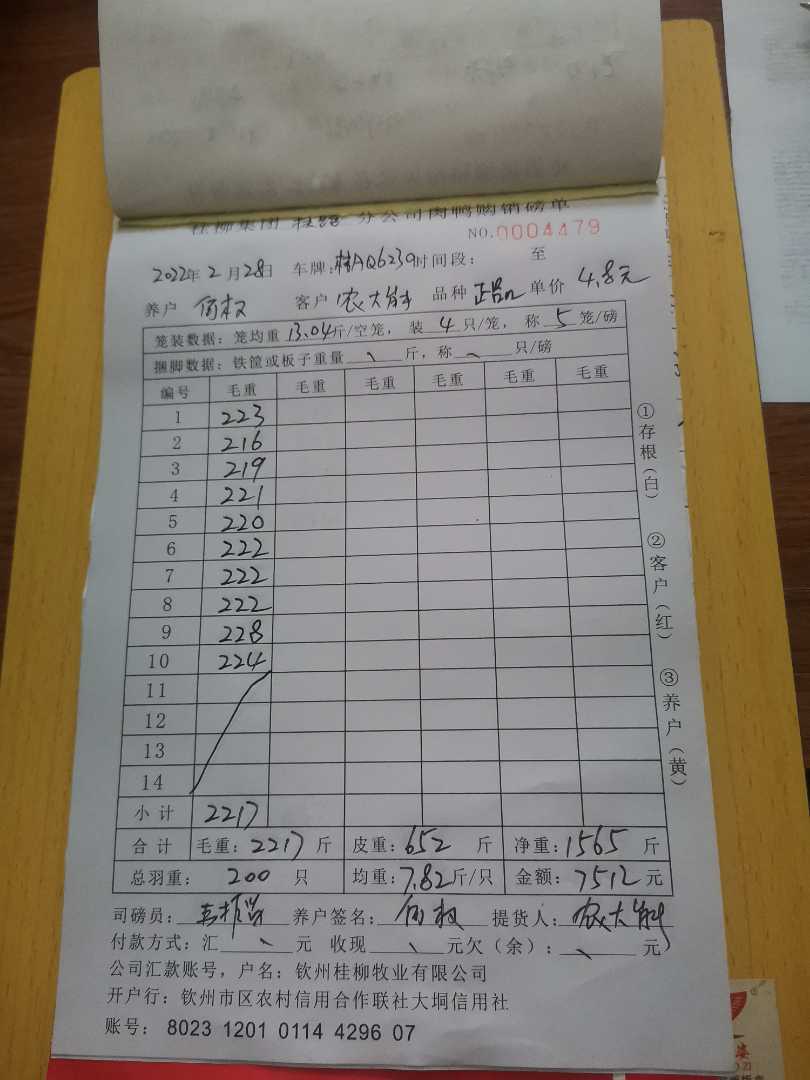 桂柳集团 桂路 分公司肉鸭购销磅单
NO.0004479
2022年2月28日 车牌:桂AQ6239时间段: 至
养户 何权 客户 农大 品种 单价 4.8元
笼装数据: 笼均重13.04斤/空笼, 装4只/笼, 称5笼/磅
捆脚数据: 铁筐或板子重量 、 斤, 称 、 只/磅
编号 毛重 毛重 毛重 毛重 毛重 毛重
1 223
2 216
3 219
4 221
5 220
6 222
7 222
8 222
9 228
10 224
11
12
13
14
小计 2217
合计 毛重: 2217 斤 皮重: 652 斤 净重: 1565 斤
总羽重: 200 只 均重: 7.82斤/只 金额: 7512 元
司磅员: 养户签名: 何权 提货人: 农大
付款方式: 汇 、 元 收现 、 元欠(余): 、 元
公司汇款账号, 户名: 钦州桂柳牧业有限公司
开户行: 钦州市区农村信用合作联社大垌信用社
账号: 8023 1201 0114 4296 07
①存根(白)
②客户(红)
③养户(黄)